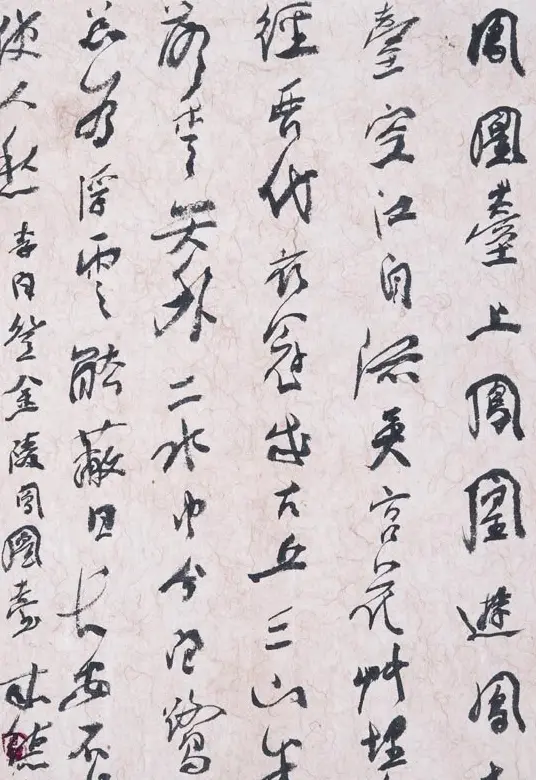 鳳凰臺上鳳凰遊鳳
臺空江自流吴宫花艸埋
徑晋代衣冠成古丘三山半
落青天外二水中分白鷺
总为浮雲能蔽日长安不
使人愁 李白登金陵鳳凰臺